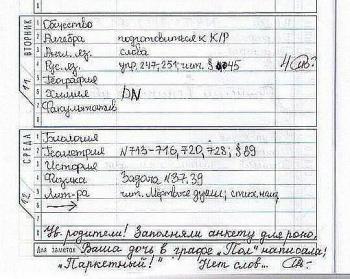 ВТОРНИК
11
1 Общество
2 Алгебра подготовиться к К/Р
3 Англ. яз. слова
4 Рус. яз. упр. 247, 251, чит. § 45
5 География
6 Химия
7 Факультатив
СРЕДА
12
1 Биология
2 Геометрия N 713-716, 720, 728; § 69
3 История
4 Физика Задача, N 37, 39
5 Лит-ра чит. Мёртвые души; стих. наиз
6 →
Ув. родители! Заполняли анкету для роно,
Для заметок Ваша дочь в графе „Пол" написала:
„Паркетный!" Нет слов...